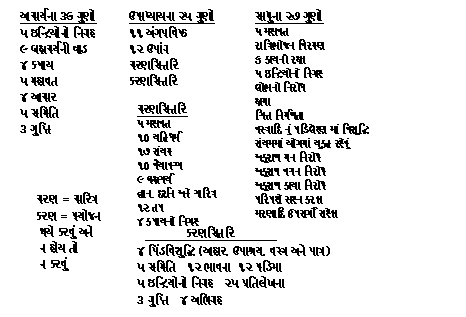 આચાર્યના 36 ગુણો
૫ ઇન્દ્રિયોનો નિગ્રહ
૯ બ્રહ્મચર્યની વાડ
૪ કષાય
૫ મહાવ્રત
૪ આચાર
૫ સમિતિ
3 ગુપ્તિ
ચરણ = ચારિત્ર
કરણ = પ્રયોજન
થયે કરવું અને
ન હોય તો
ન કરવું
ઉપાધ્યાયના ૨૫ ગુણો
૧૧ અંગપવિષ્ઠ
૧૨ ઉપાંગ
ચરણસિત્તરિ
કરણસિત્તરિ
ચરણસિત્તરિ
૫ મહાવ્રત
૧૦ યતિધર્મ
૧૭ સંયમ
૧૦ વૈયાવચ્ચ
૯ બ્રહ્મચર્ય
જ્ઞાન, દર્શન અને ચારિત્ર
૧૨ તપ
૪ કષાયનો નિગ્રહ
કરણસિત્તરિ
૪ પિંડવિશુદ્ધિ (આહાર, ઉપાશ્રય, વસ્ત્ર અને પાત્ર)
૫ સમિતિ ૧૨ ભાવના ૧૨ પડિમા
૫ ઇન્દ્રિયોનો નિગ્રહ ૨૫ પ્રતિલેખના
3 ગુપ્તિ ૪ અભિગ્રહ
સાધુના ૨૭ ગુણો
૫ મહાવ્રત
રાત્રિભોજન વિરમણ
૬ કાયની રક્ષા
૫ ઇન્દ્રિયોનો નિગ્રહ
લોભનો નિરોધ
ક્ષમા
ચિત્ત નિર્મળતા
વસ્ત્રાદિ નું પડિલેહણ માં વિશુદ્ધિ
સંયમમાં યોગમાં યુક્ત રહેવું
અકુશળ મન નિરોધ
અકુશળ વચન નિરોધ
અકુશળ કાયા નિરોધ
પરિષહો સહન કરશે
મરણાદિ ઉપસર્ગો સહેશે